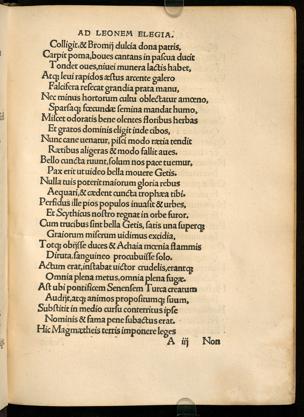 AD LEONEM ELEGIA.
Colligit.& Bromij dulcia dona patris,
Carpit poma, boues cantans in pascua ducit
Tondet oues, niuei munera lactis habet,
Atq; leui rapidos æstus arcente galero
Falcifera resecat grandia prata manu,
Nec minus hortorum cultu oblectatur amœno,
Sparsaq; fæcundæ semina mandat humo,
Miscet odoratis bene olentes floribus herbas
Et gratos dominis eligit inde cibos,
Nunc cane uenatur, pisci modo rætia tendit
Rætibus aligeras & modo fallit aues.
Bello cuncta ruunt, solum nos pace tuemur,
Pax erit ut uideo bella mouere Getis.
Nulla tuis poterit maiorum gloria rebus
Aequari, & cædent cuncta trophæa tibi.
Perfidus ille pios populos inuasit & urbes,
Et Scythicus nostro regnat in orbe furor.
Cum trucibus sint bella Getis, satis una superq;
Graiorum miserum uidimus excidia,
Totq; obijsse duces & Achaia mœnia flammis
Diruta, sanguineo procubuisse solo.
Actum erat, instabat uictor crudelis, erantq;
Omnia plena metus, omnia plena fugæ.
Ast ubi pontificem Senensem Turca creatum
Audijt, atq; animos propositumq; suum,
Substitit in medio cursu conterritus ipse
Nominis & fama pene subactus erat.
Hic Magmætheis terris imponere leges
A iij Non